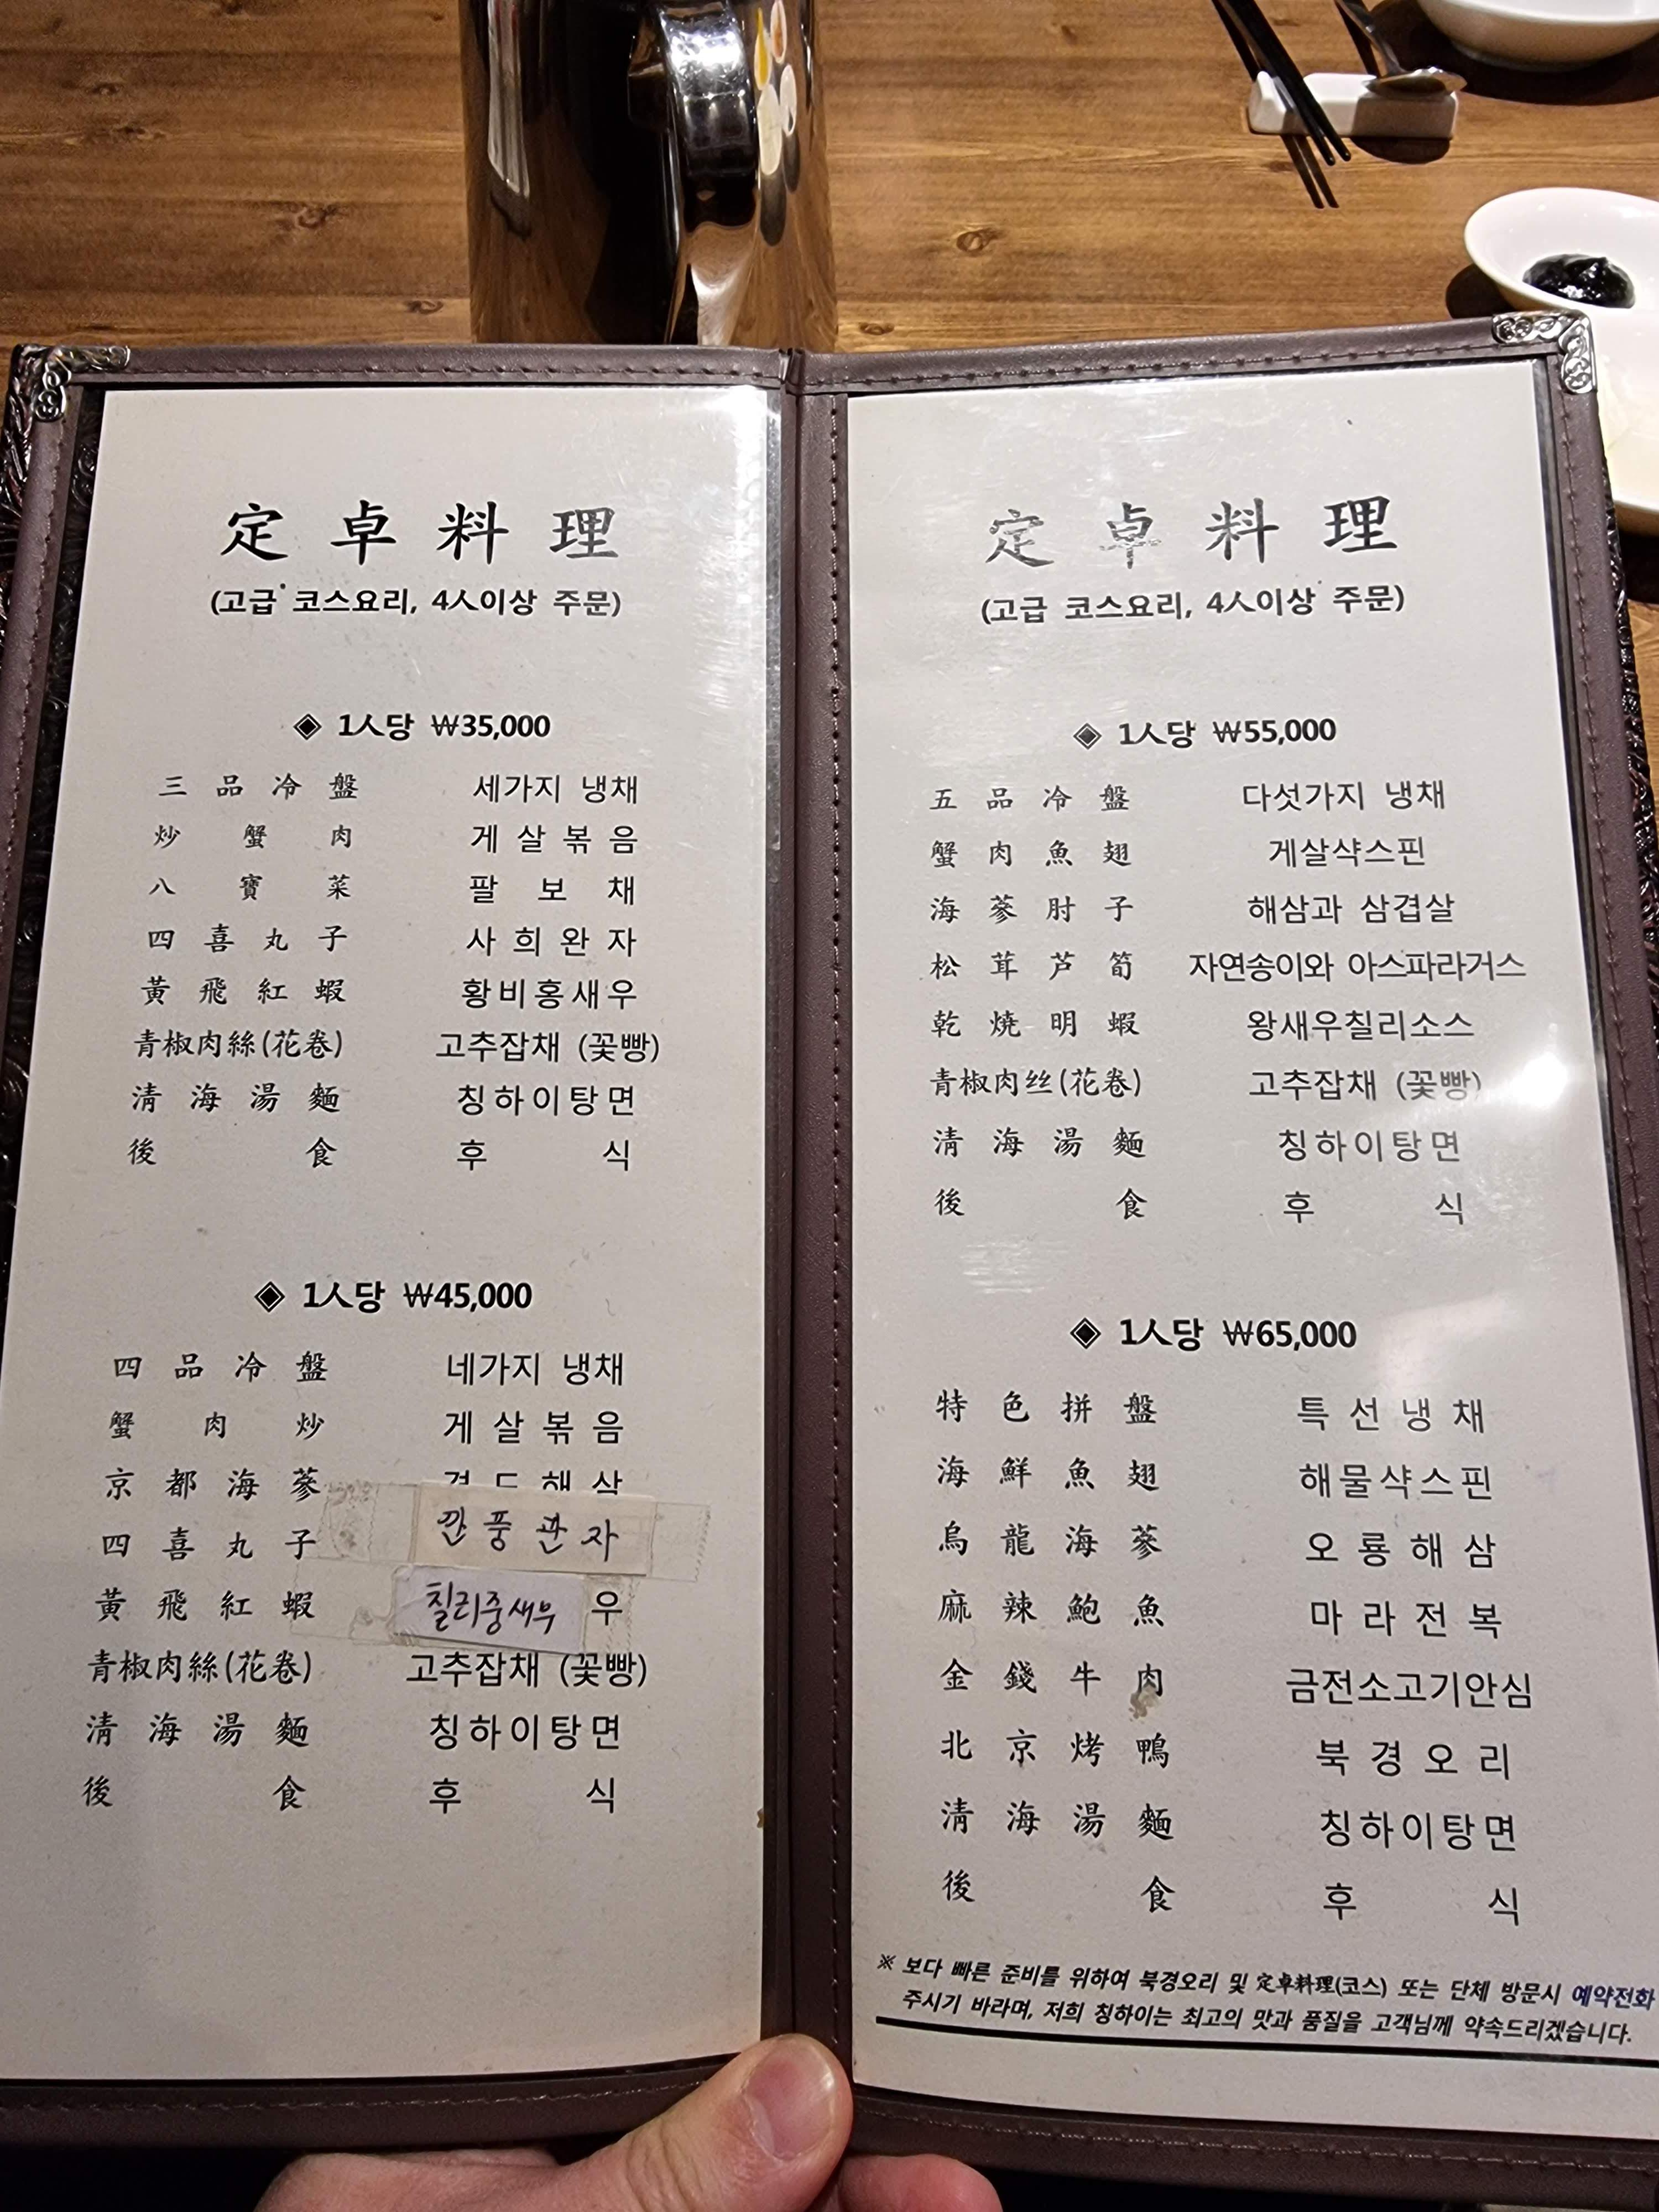 定卓料理
(고급 코스요리, 4人이상 주문)
◈ 1人당 ₩35,000
三品冷盤 세가지 냉채
炒蟹肉 게살볶음
八寶菜 팔보채
四喜丸子 사희완자
黃飛紅蝦 황비홍새우
青椒肉絲(花卷) 고추잡채 (꽃빵)
清海湯麵 칭하이탕면
後食 후식
◈ 1人당 ₩45,000
四品冷盤 네가지 냉채
蟹肉炒 게살볶음
京都海蔘 경도해삼
四喜丸子 깐풍관자
黃飛紅蝦 칠리중새우 우
青椒肉絲(花卷) 고추잡채 (꽃빵)
清海湯麵 칭하이탕면
後食 후식
定卓料理
(고급 코스요리, 4人이상 주문)
◈ 1人당 ₩55,000
五品冷盤 다섯가지 냉채
蟹肉魚翅 게살샥스핀
海蔘肘子 해삼과 삼겹살
松茸芦筍 자연송이와 아스파라거스
乾燒明蝦 왕새우칠리소스
青椒肉丝(花卷) 고추잡채 (꽃빵)
清海湯麵 칭하이탕면
後食 후식
◈ 1人당 ₩65,000
特色拼盤 특선냉채
海鮮魚翅 해물샥스핀
烏龍海蔘 오룡해삼
麻辣鮑魚 마라전복
金錢牛肉 금전소고기안심
北京烤鴨 북경오리
清海湯麵 칭하이탕면
後食 후식
※ 보다 빠른 준비를 위하여 북경오리 및 定卓料理(코스) 또는 단체 방문시 예약전화
주시기 바라며, 저희 칭하이는 최고의 맛과 품질을 고객님께 약속드리겠습니다.